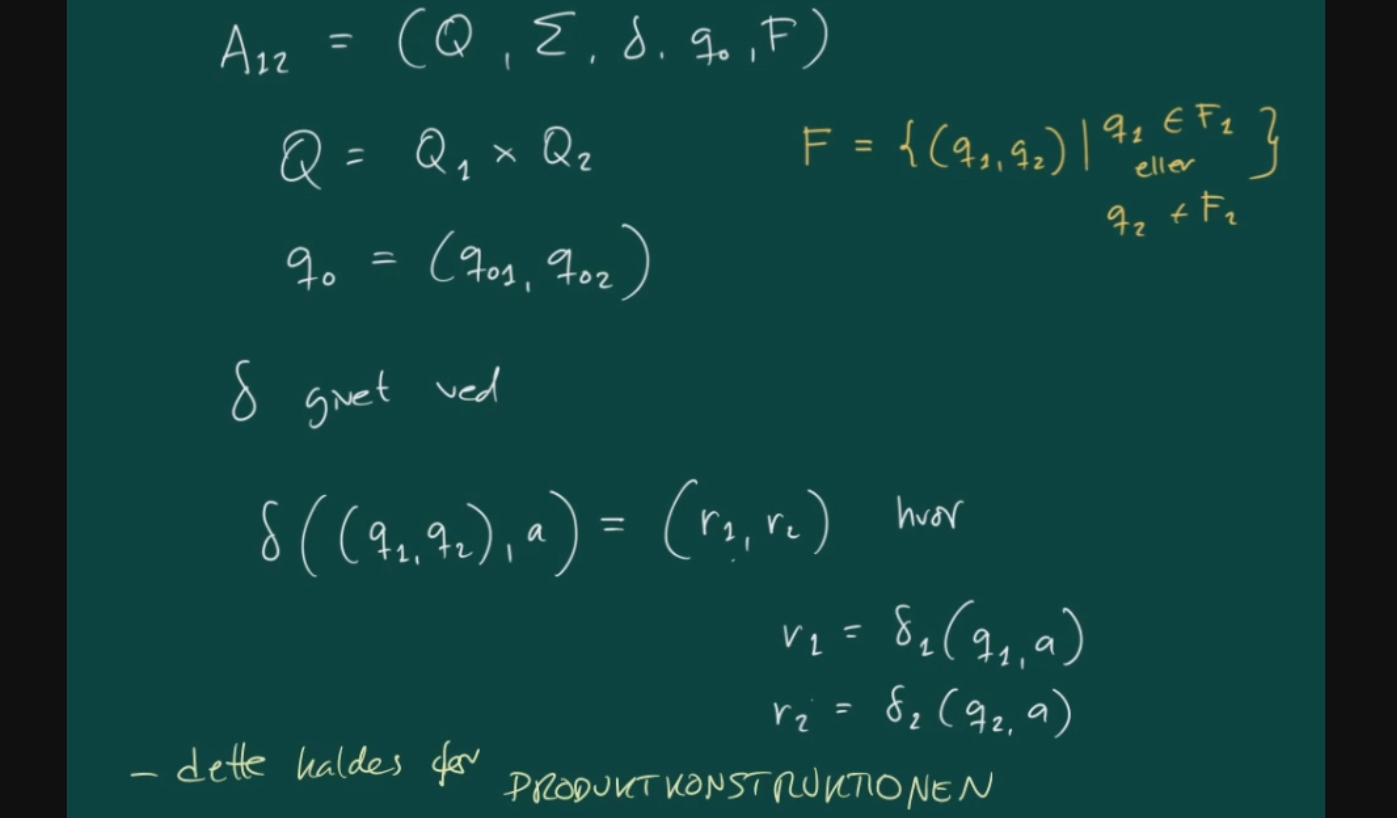 A₁₂ = (Q, Σ, δ, q₀, F)
Q = Q₁ × Q₂
F = {(q₁, q₂) | q₁ ∈ F₁
eller
q₂ ∈ F₂ }
q₀ = (q₀₁, q₀₂)
δ givet ved
δ((q₁, q₂), a) = (r₁, r₂) hvor
r₁ = δ₁(q₁, a)
r₂ = δ₂(q₂, a)
– dette kaldes for PRODUKTKONSTRUKTIONEN